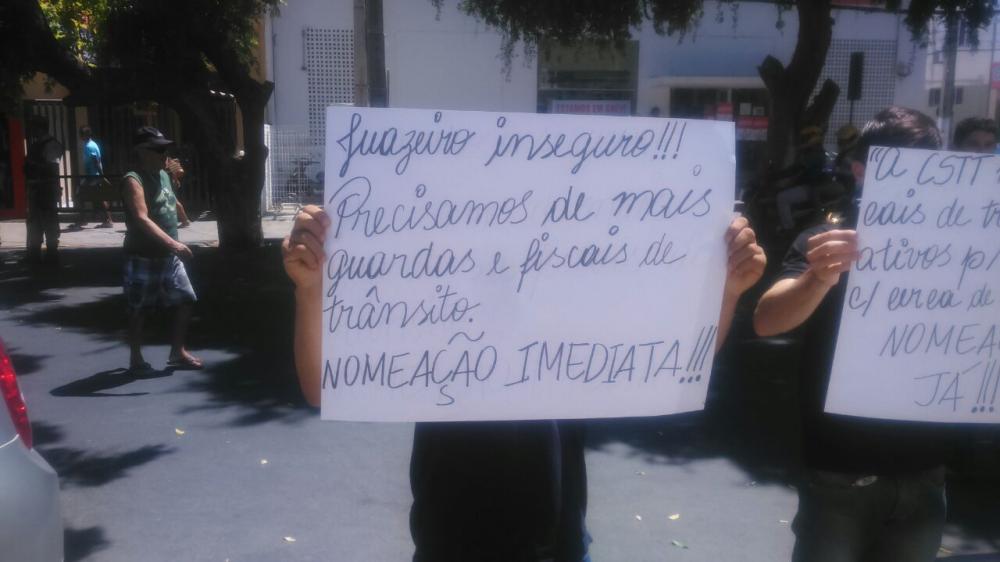 Juazeiro inseguro!!!
Precisamos de mais
guardas e fiscais de
trânsito.
NOMEAÇÃO IMEDIATA!!!
"A CSTT
cais de t
ativos p/
c/ cerca de
NOMEA
JÁ!!!
ESTAMOS EM GREVE